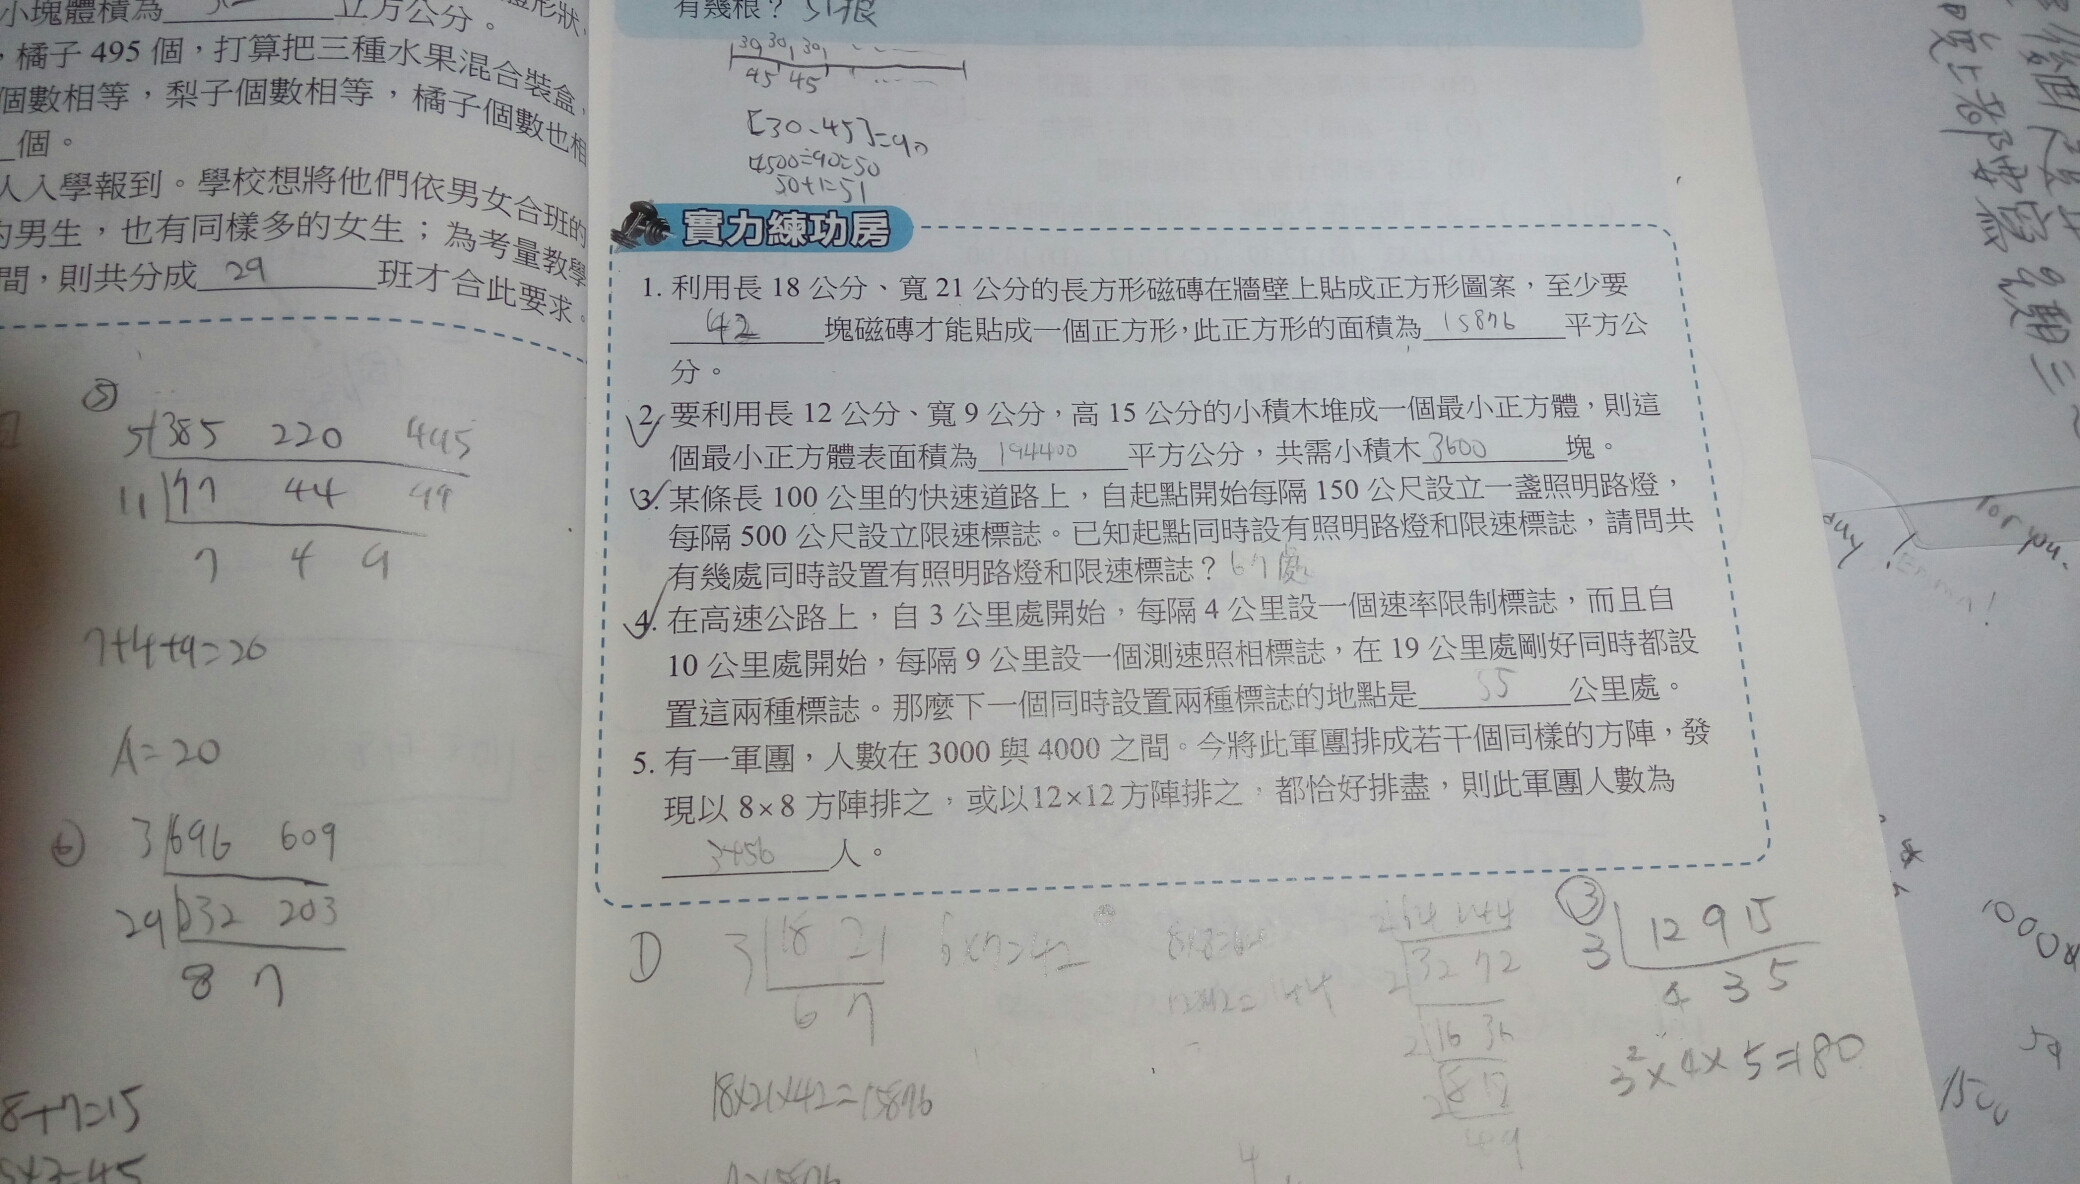 小塊體積為
立方公分。
，橘子 495 個，打算把三種水果混合裝盒，
個數相等，梨子個數相等，橘子個數也相
個。
人入學報到。學校想將他們依男女合班的
的男生，也有同樣多的女生；為考量教學
間，則共分成 29 班才合此要求。
⑤
5 385 220 495
11 77 44 99
7 4 9
7+4+9=20
A=20
⑥
3 696 609
29 232 203
8 7
8+7=15
有幾根？51根
30 30 30
45 45
[30、45]=90
4500÷90=50
50+1=51
實力練功房
1. 利用長 18 公分、寬 21 公分的長方形磁磚在牆壁上貼成正方形圖案，至少要
42 塊磁磚才能貼成一個正方形，此正方形的面積為 15876 平方公
分。
2. 要利用長 12 公分、寬 9 公分，高 15 公分的小積木堆成一個最小正方體，則這
個最小正方體表面積為 194400 平方公分，共需小積木 3600 塊。
3. 某條長 100 公里的快速道路上，自起點開始每隔 150 公尺設立一盞照明路燈，
每隔 500 公尺設立限速標誌。已知起點同時設有照明路燈和限速標誌，請問共
有幾處同時設置有照明路燈和限速標誌？67處
4. 在高速公路上，自 3 公里處開始，每隔 4 公里設一個速率限制標誌，而且自
10 公里處開始，每隔 9 公里設一個測速照相標誌，在 19 公里處剛好同時都設
置這兩種標誌。那麼下一個同時設置兩種標誌的地點是 55 公里處。
5. 有一軍團，人數在 3000 與 4000 之間。今將此軍團排成若干個同樣的方陣，發
現以 8×8 方陣排之，或以12×12方陣排之，都恰好排盡，則此軍團人數為
3456 人。
3 18 21
6 7
6×7=42
18×21×42=15876
8×8=64
12×12=144
2 64 144
2 32 72
2 16 36
2 8 18
4 9
③
3 12 9 15
4 3 5
3²×4×5=180
for you.
1500